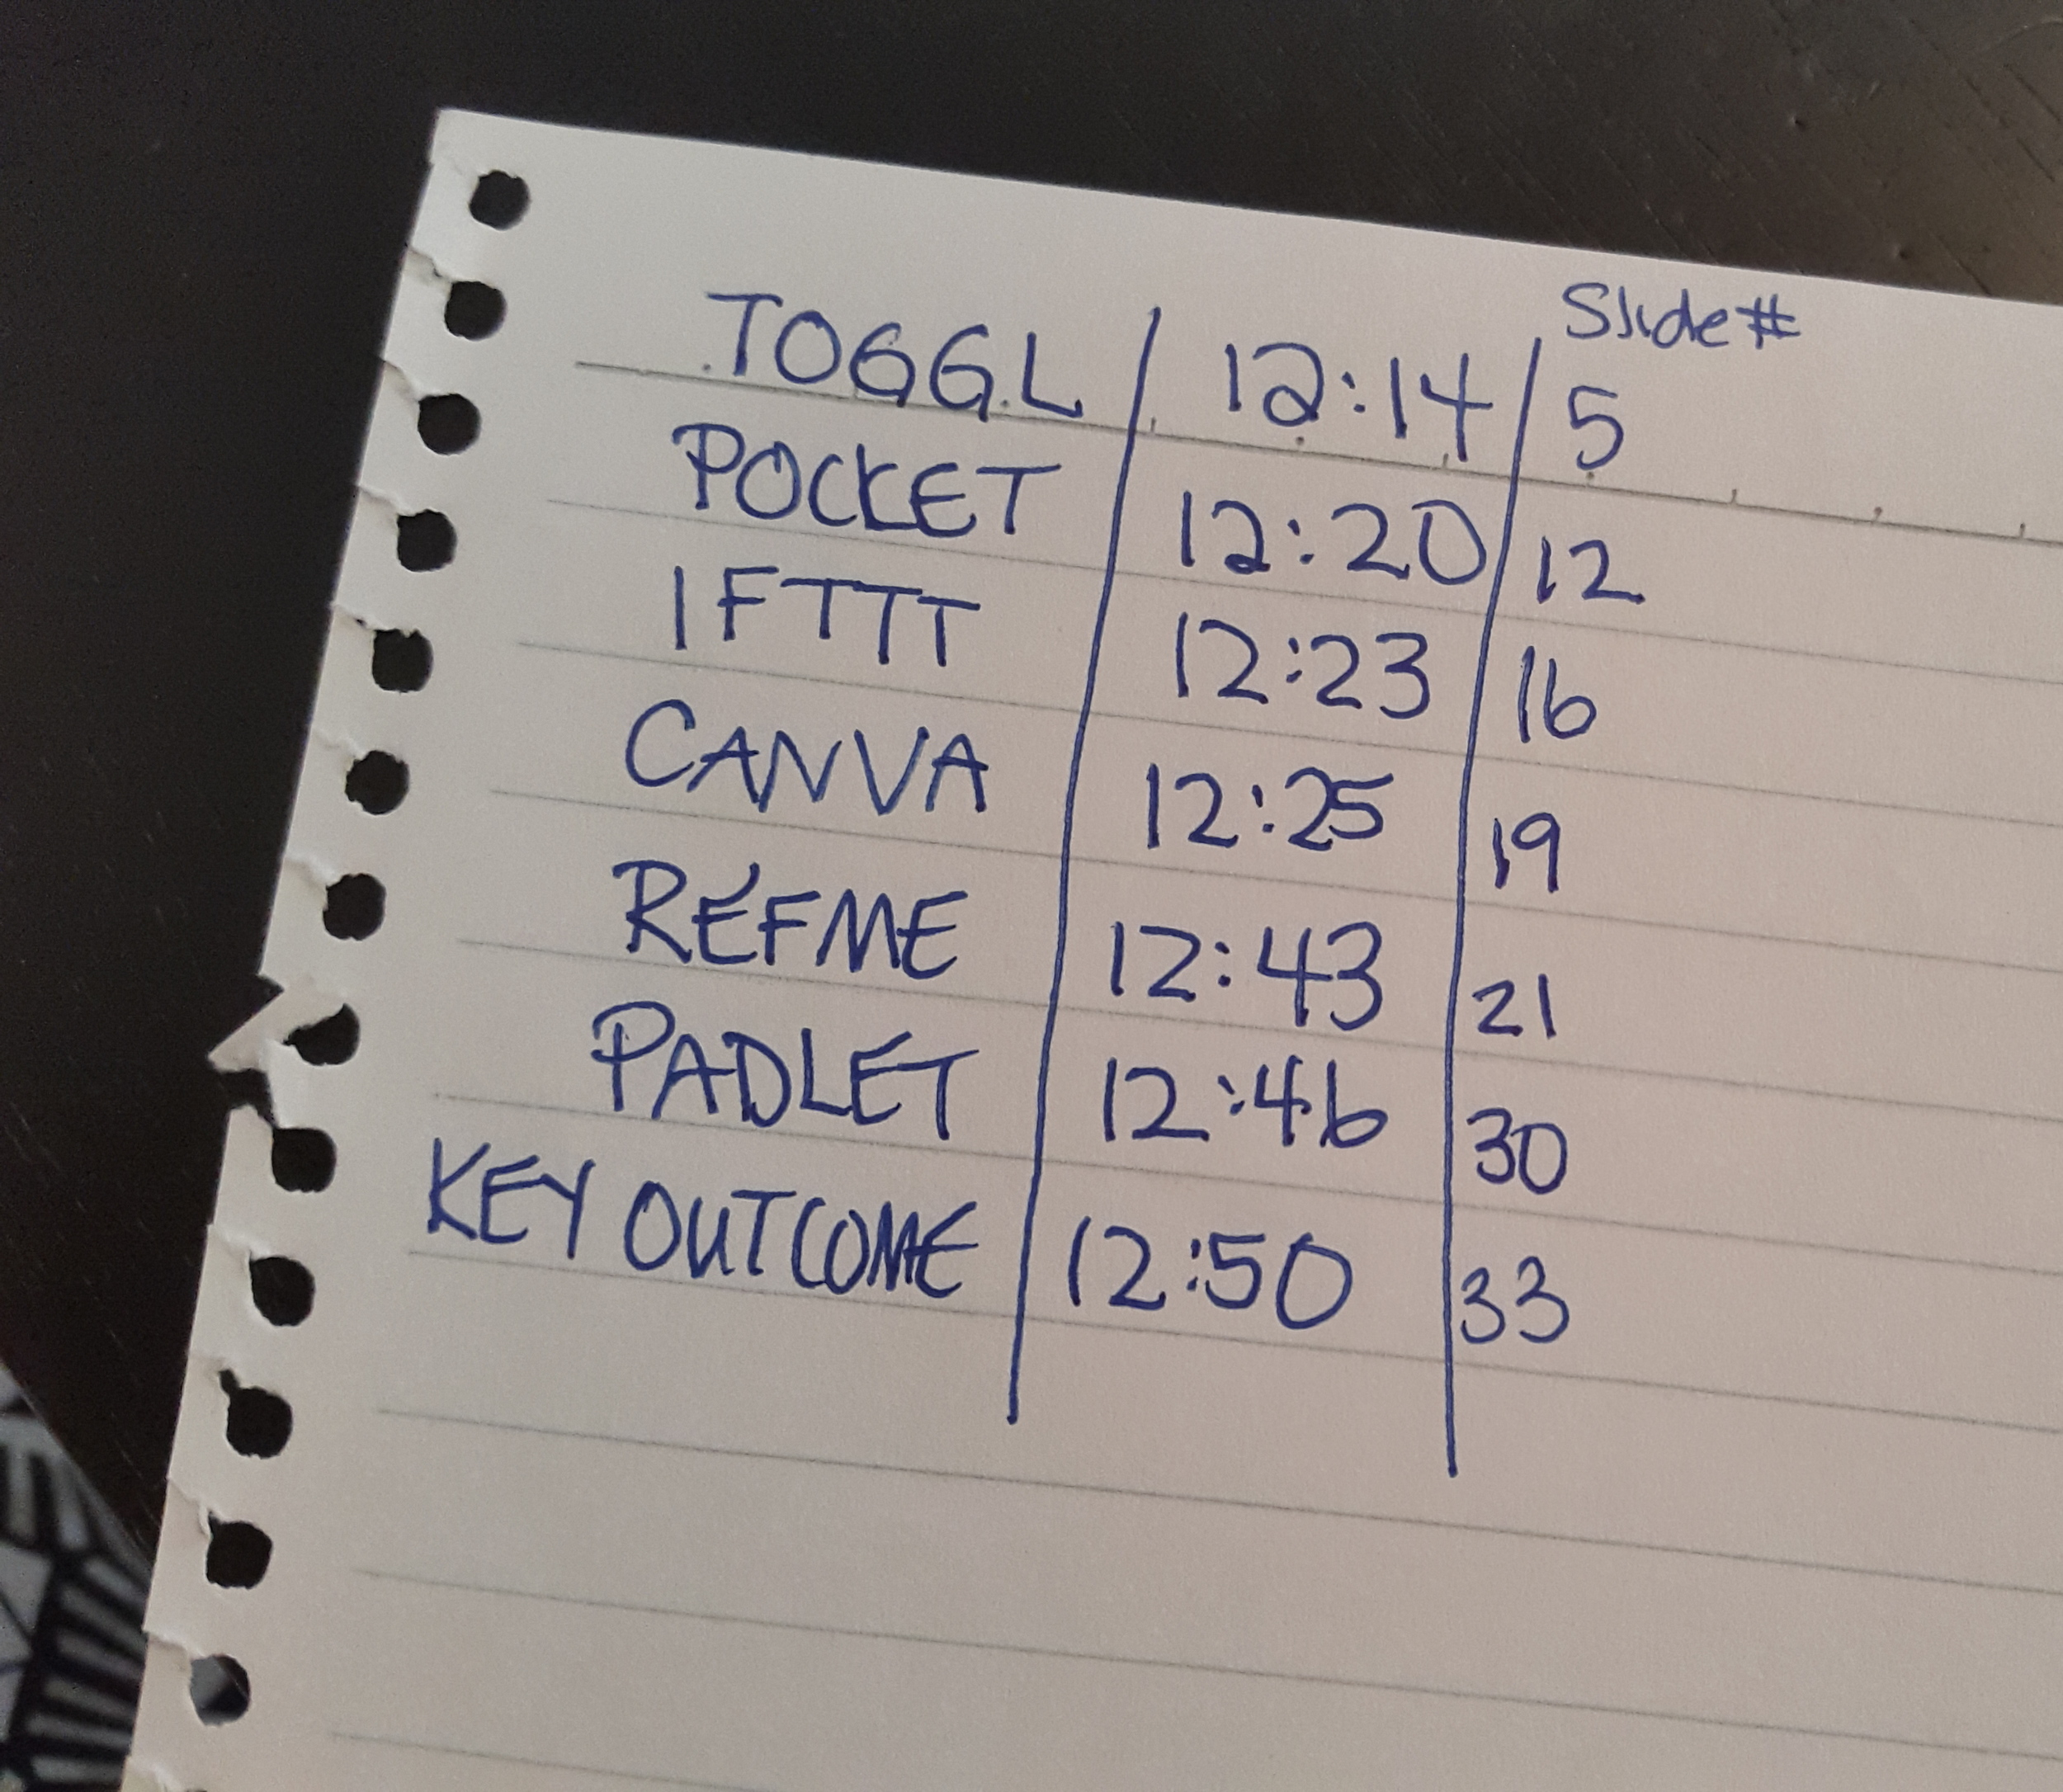 Slide#
TOGGL 12:14 5
POCKET 12:20 12
IFTTT 12:23 16
CANVA 12:25 19
REFME 12:43 21
PADLET 12:46 30
KEY OUTCOME 12:50 33